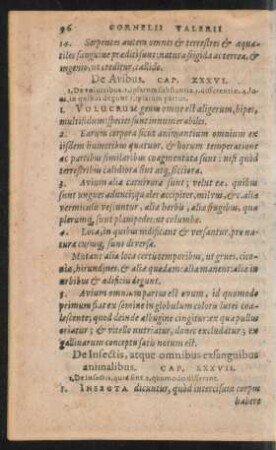 96 CORNELII VALERII
14. Serpentes autem omnes & terrestres & aquatiles
sanguine præditi sunt: natura frigida ac terrea, &
ingenio, ut creditur, callido.
De Avibus. CAP. XXXVI.
1. De volucribus. 2. ipsarum substantia, 3. differentiæ. 4. locus,
in quibus degunt. 5. ipsarum partus.
1. VOLUCRUM genus omne est aligerum, bipes,
multifidum: species sunt innumerabiles.
2. Earum corpora sicut animantium omnium ex
iisdem humoribus quatuor, & horum temperatione
ac partibus similaribus coagmentata sunt: nisi quòd
terrestribus calidiora sint atq, sicciora.
3. Avium aliæ carnivoræ sunt; velut eæ, quibus
sunt ungues adunci: quales accipitres, milvii, & c. aliæ
vermiculis vescuntur, aliæ herbis, aliæ frugibus, quæ
plerumq, sunt planipedes, ut columbæ.
4. Loca, in quibus nidificant & versantur, pro natura
cujusq, sunt diversa.
Mutant alia loca certis temporibus, ut grues, ciconiæ,
hirundines, & aliæ quædam: aliæ manent: aliæ in
urbibus & ædificiis degunt.
5. Avium omnium partus est ovum, id quomodo
primum fiat ex semine in globulum coloris lutei coalescente,
quod deinde albugine cingitur: ex quâ pullus
oriatur; & vitello nutriatur, donec excludatur; ex
gallinarum conceptu satis notum est.
De Insectis, atque omnibus exsanguibus
animalibus. CAP. XXXVII.
1. De insectis, quid sint. 2. quomodo different.
1. INSECTA dicuntur, quòd intercisum corpus
habere